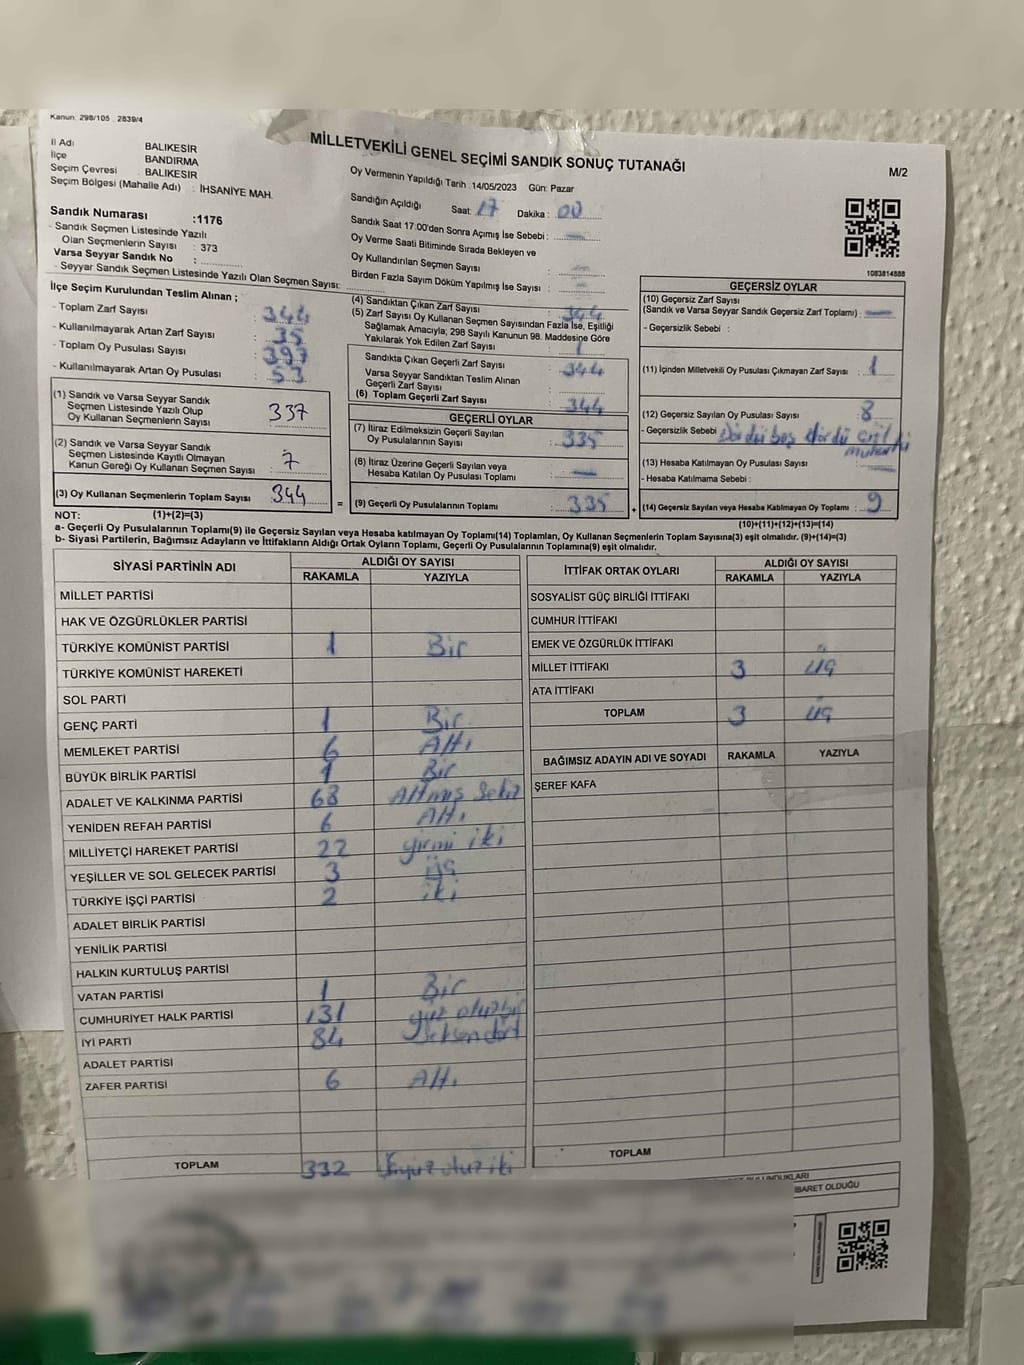 Kanun: 298/105 , 2839/4
MİLLETVEKİLİ GENEL SEÇİMİ SANDIK SONUÇ TUTANAĞI
M/2
İl Adı BALIKESİR
İlçe BANDIRMA
Seçim Çevresi : BALIKESİR
Seçim Bölgesi (Mahalle Adı) : İHSANİYE MAH.
Sandık Numarası :1176
- Sandık Seçmen Listesinde Yazılı
Olan Seçmenlerin Sayısı : 373
Varsa Seyyar Sandık No :
- Seyyar Sandık Seçmen Listesinde Yazılı Olan Seçmen Sayısı:
Oy Vermenin Yapıldığı Tarih : 14/05/2023 Gün: Pazar
Sandığın Açıldığı Saat: 17 Dakika : 00
Sandık Saat 17:00'den Sonra Açımış İse Sebebi : —
Oy Verme Saati Bitiminde Sırada Bekleyen ve
Oy Kullandırılan Seçmen Sayısı : —
Birden Fazla Sayım Döküm Yapılmış İse Sayısı : —
1083814888
İlçe Seçim Kurulundan Teslim Alınan ;
- Toplam Zarf Sayısı : 344
- Kullanılmayarak Artan Zarf Sayısı : 35
- Toplam Oy Pusulası Sayısı : 397
- Kullanılmayarak Artan Oy Pusulası : 53
(1) Sandık ve Varsa Seyyar Sandık
Seçmen Listesinde Yazılı Olup
Oy Kullanan Seçmenlerin Sayısı : 337
(2) Sandık ve Varsa Seyyar Sandık
Seçmen Listesinde Kayıtlı Olmayan
Kanun Gereği Oy Kullanan Seçmen Sayısı : 7
(3) Oy Kullanan Seçmenlerin Toplam Sayısı : 344
(4) Sandıktan Çıkan Zarf Sayısı : 344
(5) Zarf Sayısı Oy Kullanan Seçmen Sayısından Fazla İse, Eşitliği
Sağlamak Amacıyla; 298 Sayılı Kanunun 98. Maddesine Göre
Yakılarak Yok Edilen Zarf Sayısı :
Sandıkta Çıkan Geçerli Zarf Sayısı : 344
Varsa Seyyar Sandıktan Teslim Alınan
Geçerli Zarf Sayısı :
(6) Toplam Geçerli Zarf Sayısı : 344
GEÇERLİ OYLAR
(7) İtiraz Edilmeksizin Geçerli Sayılan
Oy Pusulalarının Sayısı : 335
(8) İtiraz Üzerine Geçerli Sayılan veya
Hesaba Katılan Oy Pusulası Toplamı : —
= (9) Geçerli Oy Pusulalarının Toplamı : 335
GEÇERSİZ OYLAR
(10) Geçersiz Zarf Sayısı
(Sandık ve Varsa Seyyar Sandık Geçersiz Zarf Toplamı) : —
- Geçersizlik Sebebi :
(11) İçinden Milletvekili Oy Pusulası Çıkmayan Zarf Sayısı : 1
(12) Geçersiz Sayılan Oy Pusulası Sayısı : 8
- Geçersizlik Sebebi : Dördü boş dördü
(13) Hesaba Katılmayan Oy Pusulası Sayısı : —
- Hesaba Katılmama Sebebi :
+ (14) Geçersiz Sayılan veya Hesaba Katılmayan Oy Toplamı : 9
NOT: (1)+(2)=(3)
(10)+(11)+(12)+(13)=(14)
a- Geçerli Oy Pusulalarının Toplamı(9) ile Geçersiz Sayılan veya Hesaba katılmayan Oy Toplamı(14) Toplamları, Oy Kullanan Seçmenlerin Toplam Sayısına(3) eşit olmalıdır. (9)+(14)=(3)
b- Siyasi Partilerin, Bağımsız Adayların ve İttifakların Aldığı Ortak Oyların Toplamı, Geçerli Oy Pusulalarının Toplamına(9) eşit olmalıdır.
SİYASİ PARTİNİN ADI ALDIĞI OY SAYISI
RAKAMLA YAZIYLA
MİLLET PARTİSİ
HAK VE ÖZGÜRLÜKLER PARTİSİ
TÜRKİYE KOMÜNİST PARTİSİ 1 Bir
TÜRKİYE KOMÜNİST HAREKETİ
SOL PARTİ
GENÇ PARTİ 1 Bir
MEMLEKET PARTİSİ 6 Altı
BÜYÜK BİRLİK PARTİSİ 1 Bir
ADALET VE KALKINMA PARTİSİ 68 Altmış Sekiz
YENİDEN REFAH PARTİSİ 6 Altı
MİLLİYETÇİ HAREKET PARTİSİ 22 yirmi iki
YEŞİLLER VE SOL GELECEK PARTİSİ 3 üç
TÜRKİYE İŞÇİ PARTİSİ 2 iki
ADALET BİRLİK PARTİSİ
YENİLİK PARTİSİ
HALKIN KURTULUŞ PARTİSİ
VATAN PARTİSİ 1 Bir
CUMHURİYET HALK PARTİSİ 131 yüz otuzbir
İYİ PARTİ 84 seksendört
ADALET PARTİSİ
ZAFER PARTİSİ 6 Altı
TOPLAM 332 Üçyüz otuz iki
İTTİFAK ORTAK OYLARI ALDIĞI OY SAYISI
RAKAMLA YAZIYLA
SOSYALİST GÜÇ BİRLİĞİ İTTİFAKI
CUMHUR İTTİFAKI
EMEK VE ÖZGÜRLÜK İTTİFAKI
MİLLET İTTİFAKI 3 üç
ATA İTTİFAKI
TOPLAM 3 üç
BAĞIMSIZ ADAYIN ADI VE SOYADI RAKAMLA YAZIYLA
ŞEREF KAFA
TOPLAM
İBARET OLDUĞU